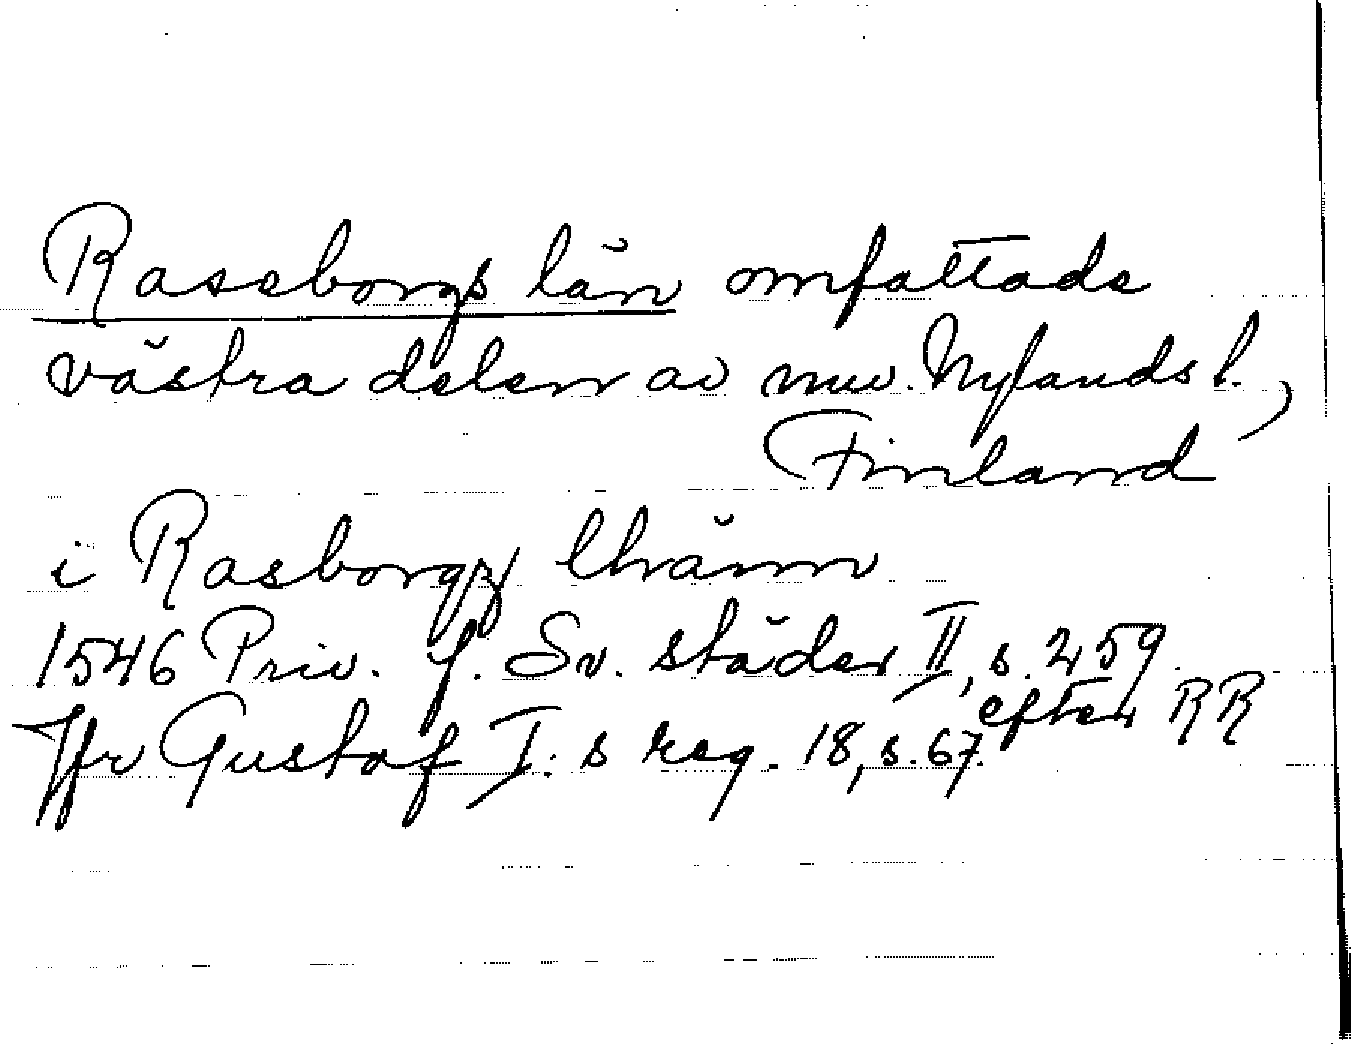 Raseborgs län omfattade
västra delen av nuv. Nylands l.,
Finland
i Rasborgz lhänn
1546 Priv. f. Sv. städer II, s. 259
efter RR
Jfr Gustaf I:s reg. 18, s. 67.